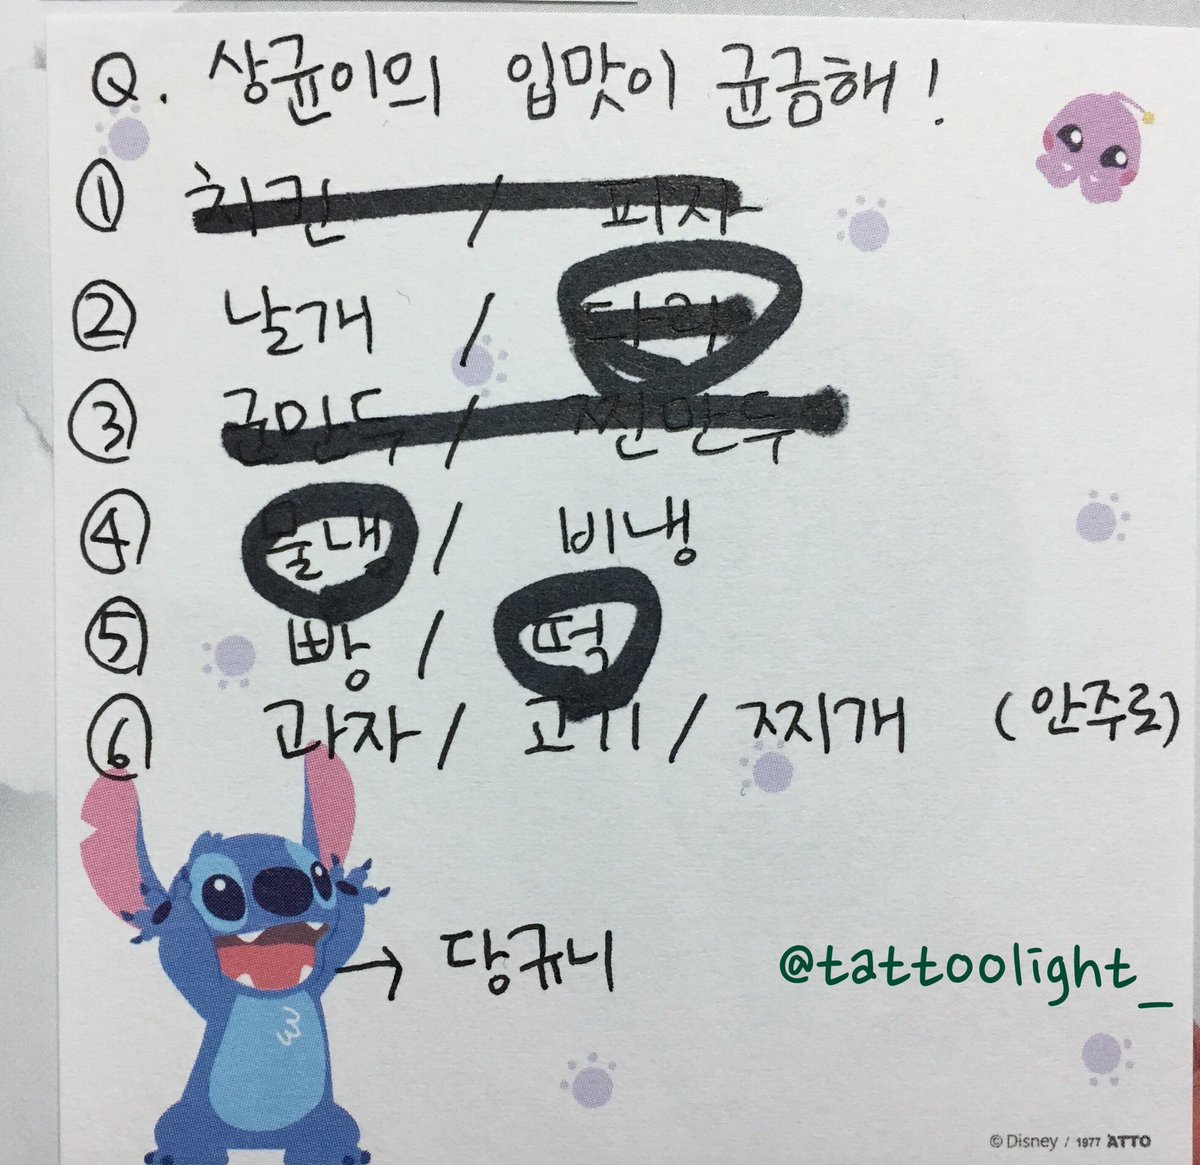 Q. 상균이의 입맛이 균금해!
① 치킨 / 피자
② 날개 / 다리
③ 군만두 / 찐만두
④ 물냉 / 비냉
⑤ 빵 / 떡
⑥ 과자 / 고기 / 찌개 (안주로)
→ 당규니
@tattoolight_
© Disney / 1977 ATTO